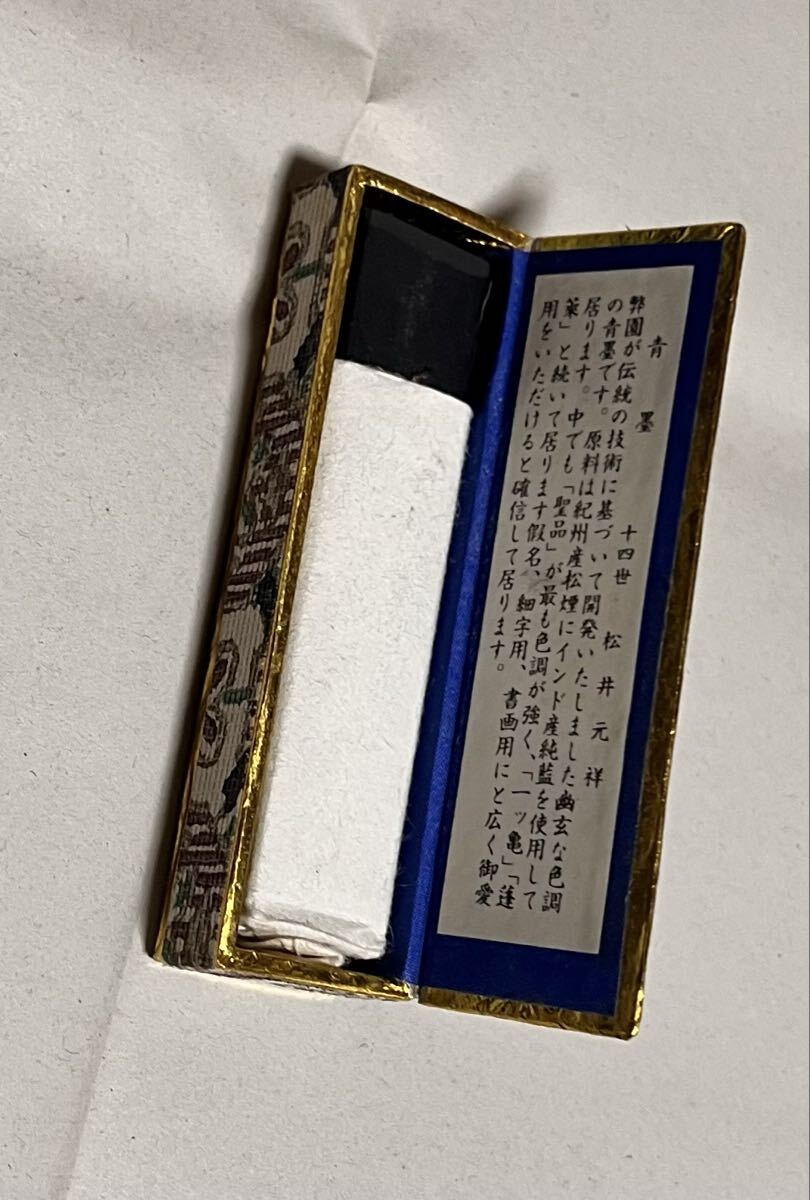 青墨
十四世 松井元祥
弊園が伝統の技術に基づいて開発いたしました幽玄な色調
の青墨です。原料は紀州産松煙にインド産純藍を使用して
居ります。中でも「聖品」が最も色調が強く、「一ッ亀」「蓬
莱」と続いて居ります假名、細字用、書画用にと広く御愛
用をいただけると確信して居ります。